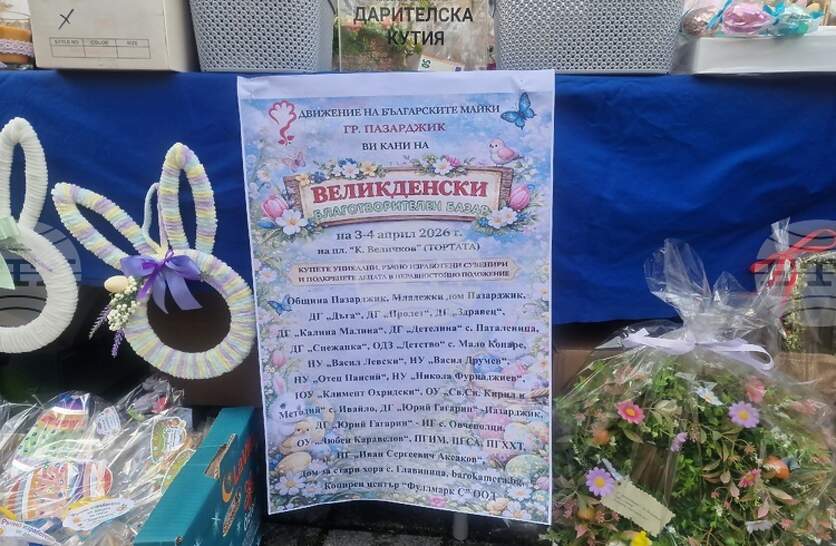 STYLE NO. COLOR SIZE
ДАРИТЕЛСКА
КУТИЯ
ДВИЖЕНИЕ НА БЪЛГАРСКИТЕ МАЙКИ
ГР. ПАЗАРДЖИК
ВИ КАНИ НА
ВЕЛИКДЕНСКИ
БЛАГОТВОРИТЕЛЕН БАЗАР
на 3-4 април 2026 г.
на пл. "К. Величков" (ТОРТАТА)
КУПЕТЕ УНИКАЛНИ, РЪЧНО ИЗРАБОТЕНИ СУВЕНИРИ
И ПОДКРЕПЕТЕ ДЕЦАТА В НЕРАВНОСТОЙНО ПОЛОЖЕНИЕ
Община Пазарджик, Младежки дом Пазарджик,
ДГ „Дъга", ДГ „Пролет", ДГ „Здравец",
ДГ „Калина Малина", ДГ „Детелина" с. Паталеница,
ДГ „Снежанка", ОДЗ „Детство" с. Мало Конаре,
НУ „Васил Левски", НУ „Васил Друмев",
НУ „Отец Паисий", НУ „Никола Фурнаджиев",
ІОУ „Климент Охридски", ОУ „Св.Св. Кирил и
Методий" с. Ивайло, ДГ „Юрий Гагарин" - Пазарджик,
ДГ „Юрий Гагарин" - ИГ с. Овчеполци,
ОУ „Любен Каравелов", ПГИМ, ПГСА, ПГХХТ,
ПГ "Иван Сергеевич Аксаков",
Дом за стари хора с. Главиница, barokamera.bg,
Копирен център "Фуллмарк С" ООД